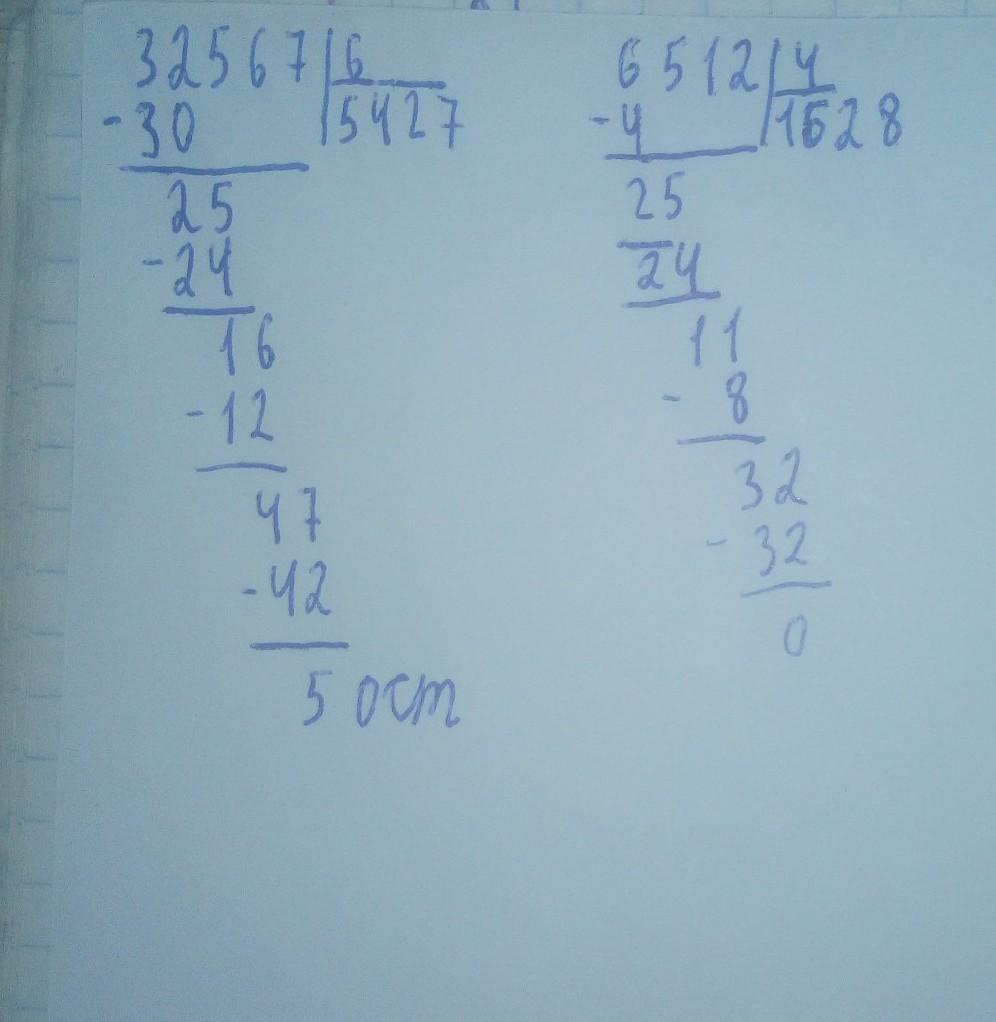 32567 6
-30 5427
25
-24
16
-12
47
-42
5 ост
6512 4
-4 1628
25
24
11
- 8
32
- 32
0